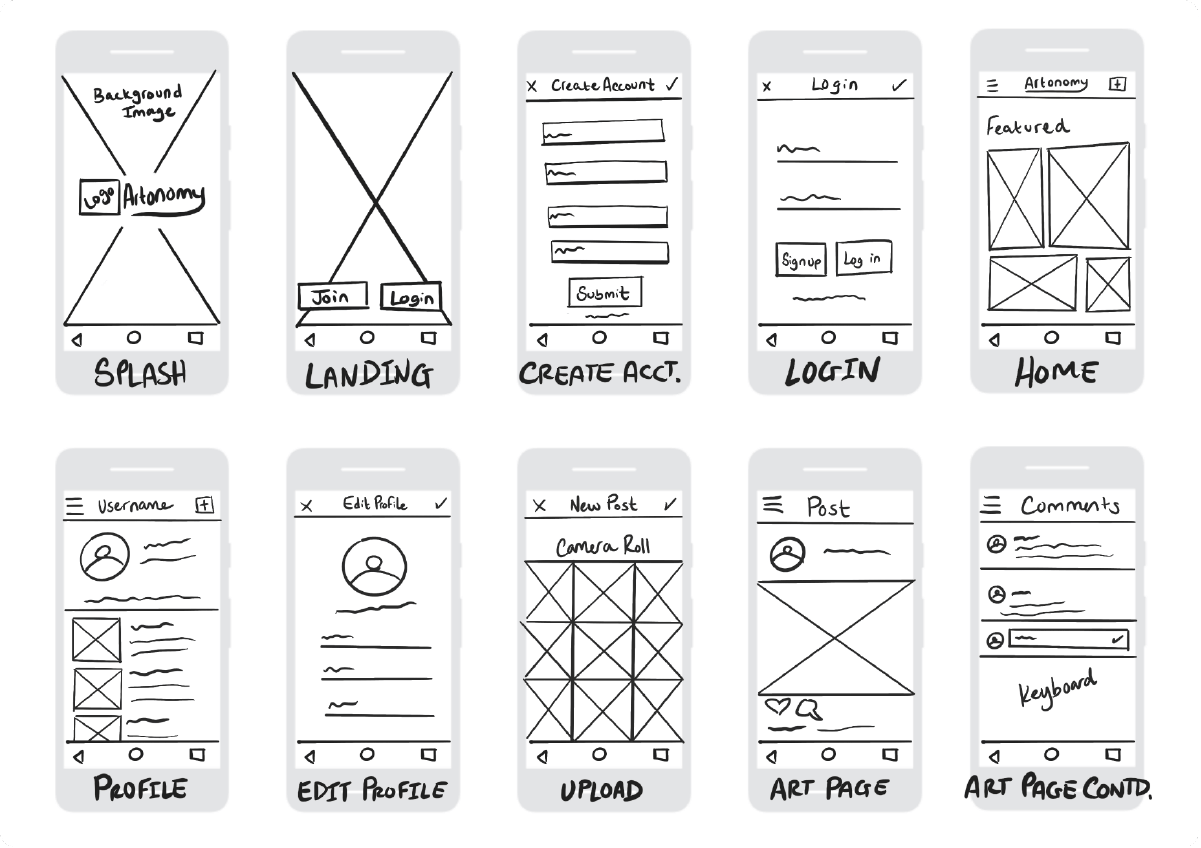 Background
Image
Logo
Artonomy
SPLASH
Join
Login
LANDING
Create Account
Submit
CREATE ACCT.
Login
Signup
Log in
LOGIN
Artonomy
Featured
HOME
Username
PROFILE
Edit Profile
EDIT PROFILE
New Post
Camera Roll
UPLOAD
Post
ART PAGE
Comments
Keyboard
ART PAGE CONTD.